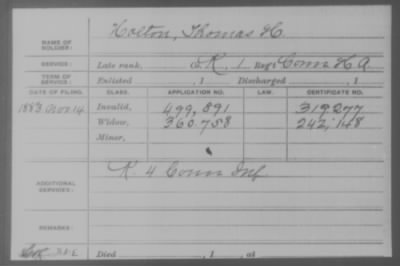 NAME OF SOLDIER: Holton, Thomas H.
SERVICE: Late rank, Co. K, 1 Reg't Conn H.A.
TERM OF SERVICE: Enlisted , 1 Discharged , 1
DATE OF FILING. CLASS. APPLICATION NO. LAW. CERTIFICATE NO.
1883 Nov 14 Invalid, 499,891 319,277
Widow, 360.758 242,148
Minor,
ADDITIONAL SERVICES: K. 4 Conn Inf.
REMARKS:
Died , 1 , at